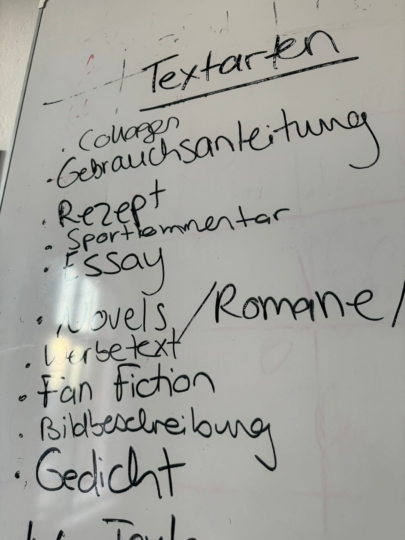 Textarten
· Collagen
· Gebrauchsanleitung
· Rezept
· Sportkommentar
· Essay
· Novels /Romane/
· Werbetext
· Fan Fiction
· Bildbeschreibung
· Gedicht